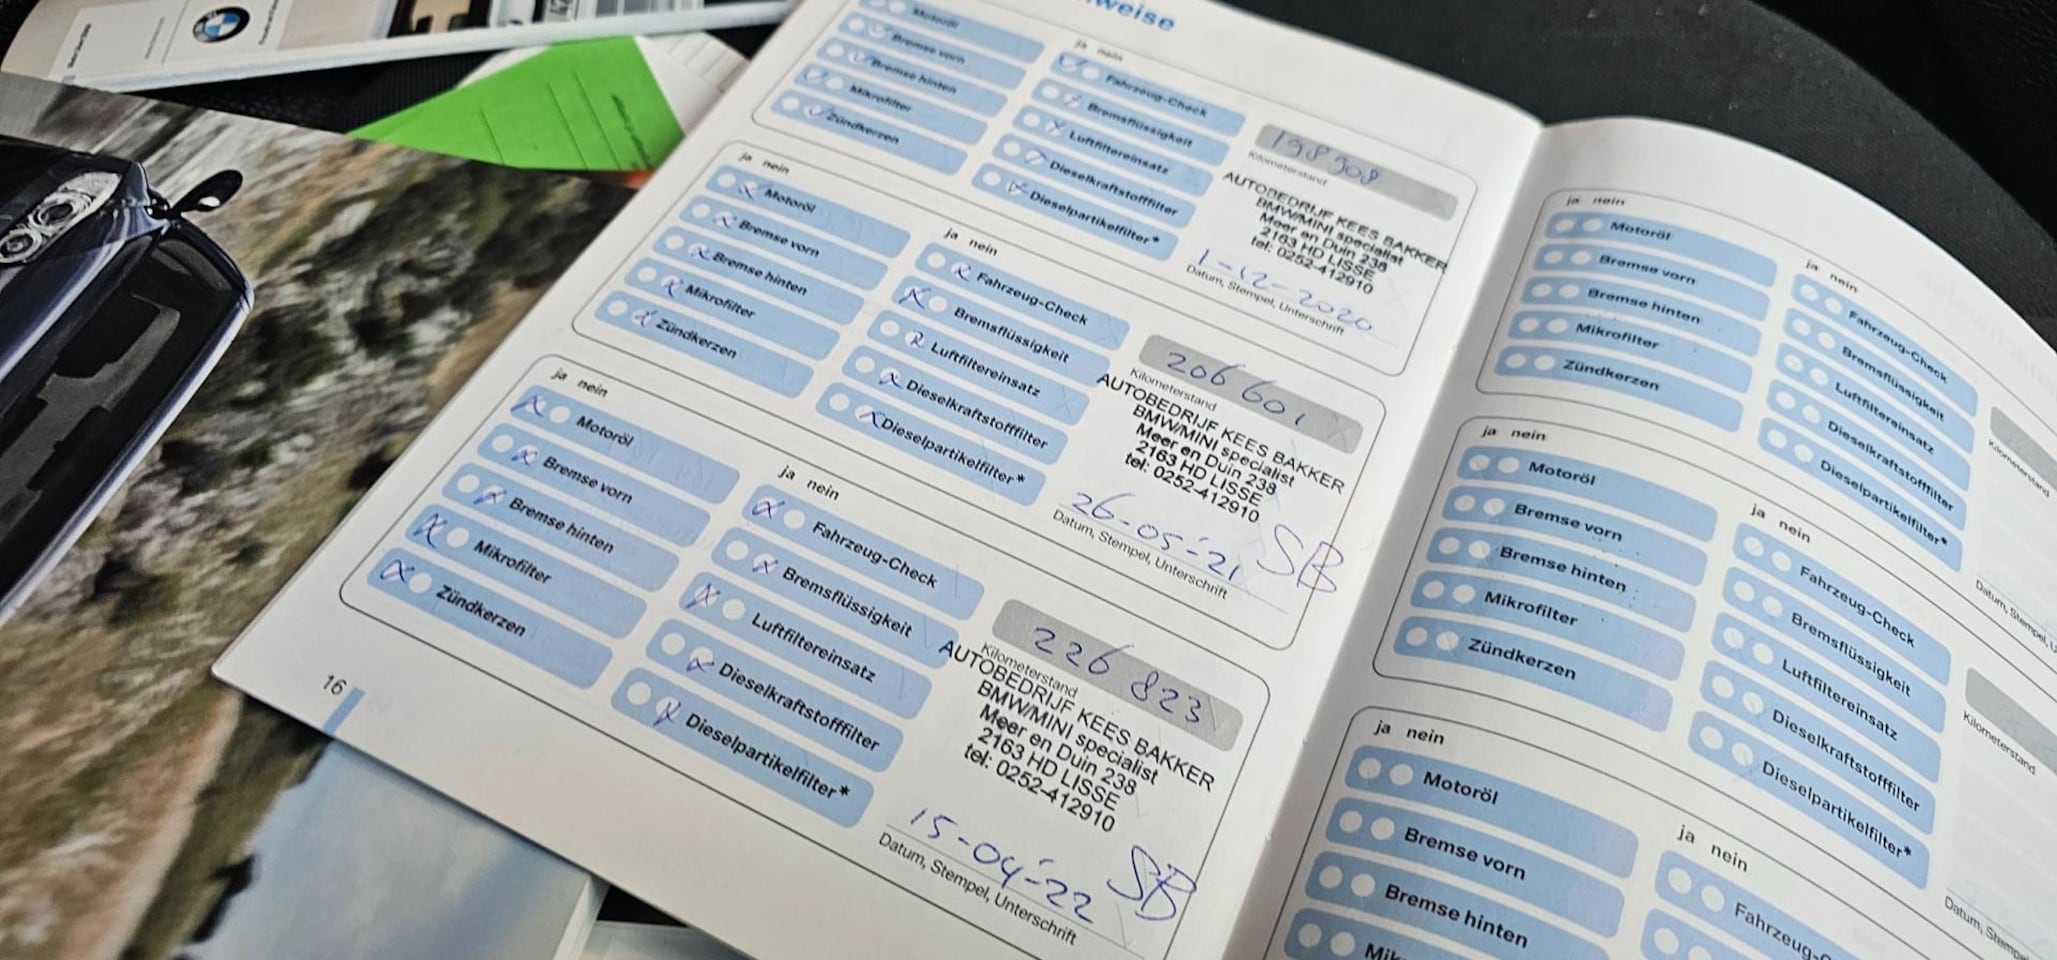 nweise
Motoröl
Bremse vorn
Bremse hinten
Mikrofilter
Zündkerzen
ja nein
Fahrzeug-Check
Bremsflüssigkeit
Luftfiltereinsatz
Dieselkraftstofffilter
Dieselpartikelfilter*
198 308
Kilometerstand
AUTOBEDRIJF KEES BAKKER
BMW/MINI specialist
Meer en Duin 238
2163 HD LISSE
tel: 0252-412910
1-12-2020
Datum, Stempel, Unterschrift
ja nein
Motoröl
Bremse vorn
Bremse hinten
Mikrofilter
Zündkerzen
ja nein
Fahrzeug-Check
Bremsflüssigkeit
Luftfiltereinsatz
Dieselkraftstofffilter
Dieselpartikelfilter*
206 601
Kilometerstand
AUTOBEDRIJF KEES BAKKER
BMW/MINI specialist
Meer en Duin 238
2163 HD LISSE
tel: 0252-412910
26-05-'21 SB
Datum, Stempel, Unterschrift
ja nein
Motoröl
Bremse vorn
Bremse hinten
Mikrofilter
Zündkerzen
ja nein
Fahrzeug-Check
Bremsflüssigkeit
Luftfiltereinsatz
Dieselkraftstofffilter
Dieselpartikelfilter*
226 823
Kilometerstand
AUTOBEDRIJF KEES BAKKER
BMW/MINI specialist
Meer en Duin 238
2163 HD LISSE
tel: 0252-412910
15-04-'22 SB
Datum, Stempel, Unterschrift
16
ja nein
Motoröl
Bremse vorn
Bremse hinten
Mikrofilter
Zündkerzen
ja nein
Fahrzeug-Check
Bremsflüssigkeit
Luftfiltereinsatz
Dieselkraftstofffilter
Dieselpartikelfilter*
Kilometerstand
Datum, Stempel, U
ja nein
Motoröl
Bremse vorn
Bremse hinten
Mikrofilter
Zündkerzen
ja nein
Fahrzeug-Check
Bremsflüssigkeit
Luftfiltereinsatz
Dieselkraftstofffilter
Dieselpartikelfilter*
Kilometerstand
Datum, Stem
ja nein
Motoröl
Bremse vorn
Bremse hinten
Mik
ja nein
Fahrzeug-C